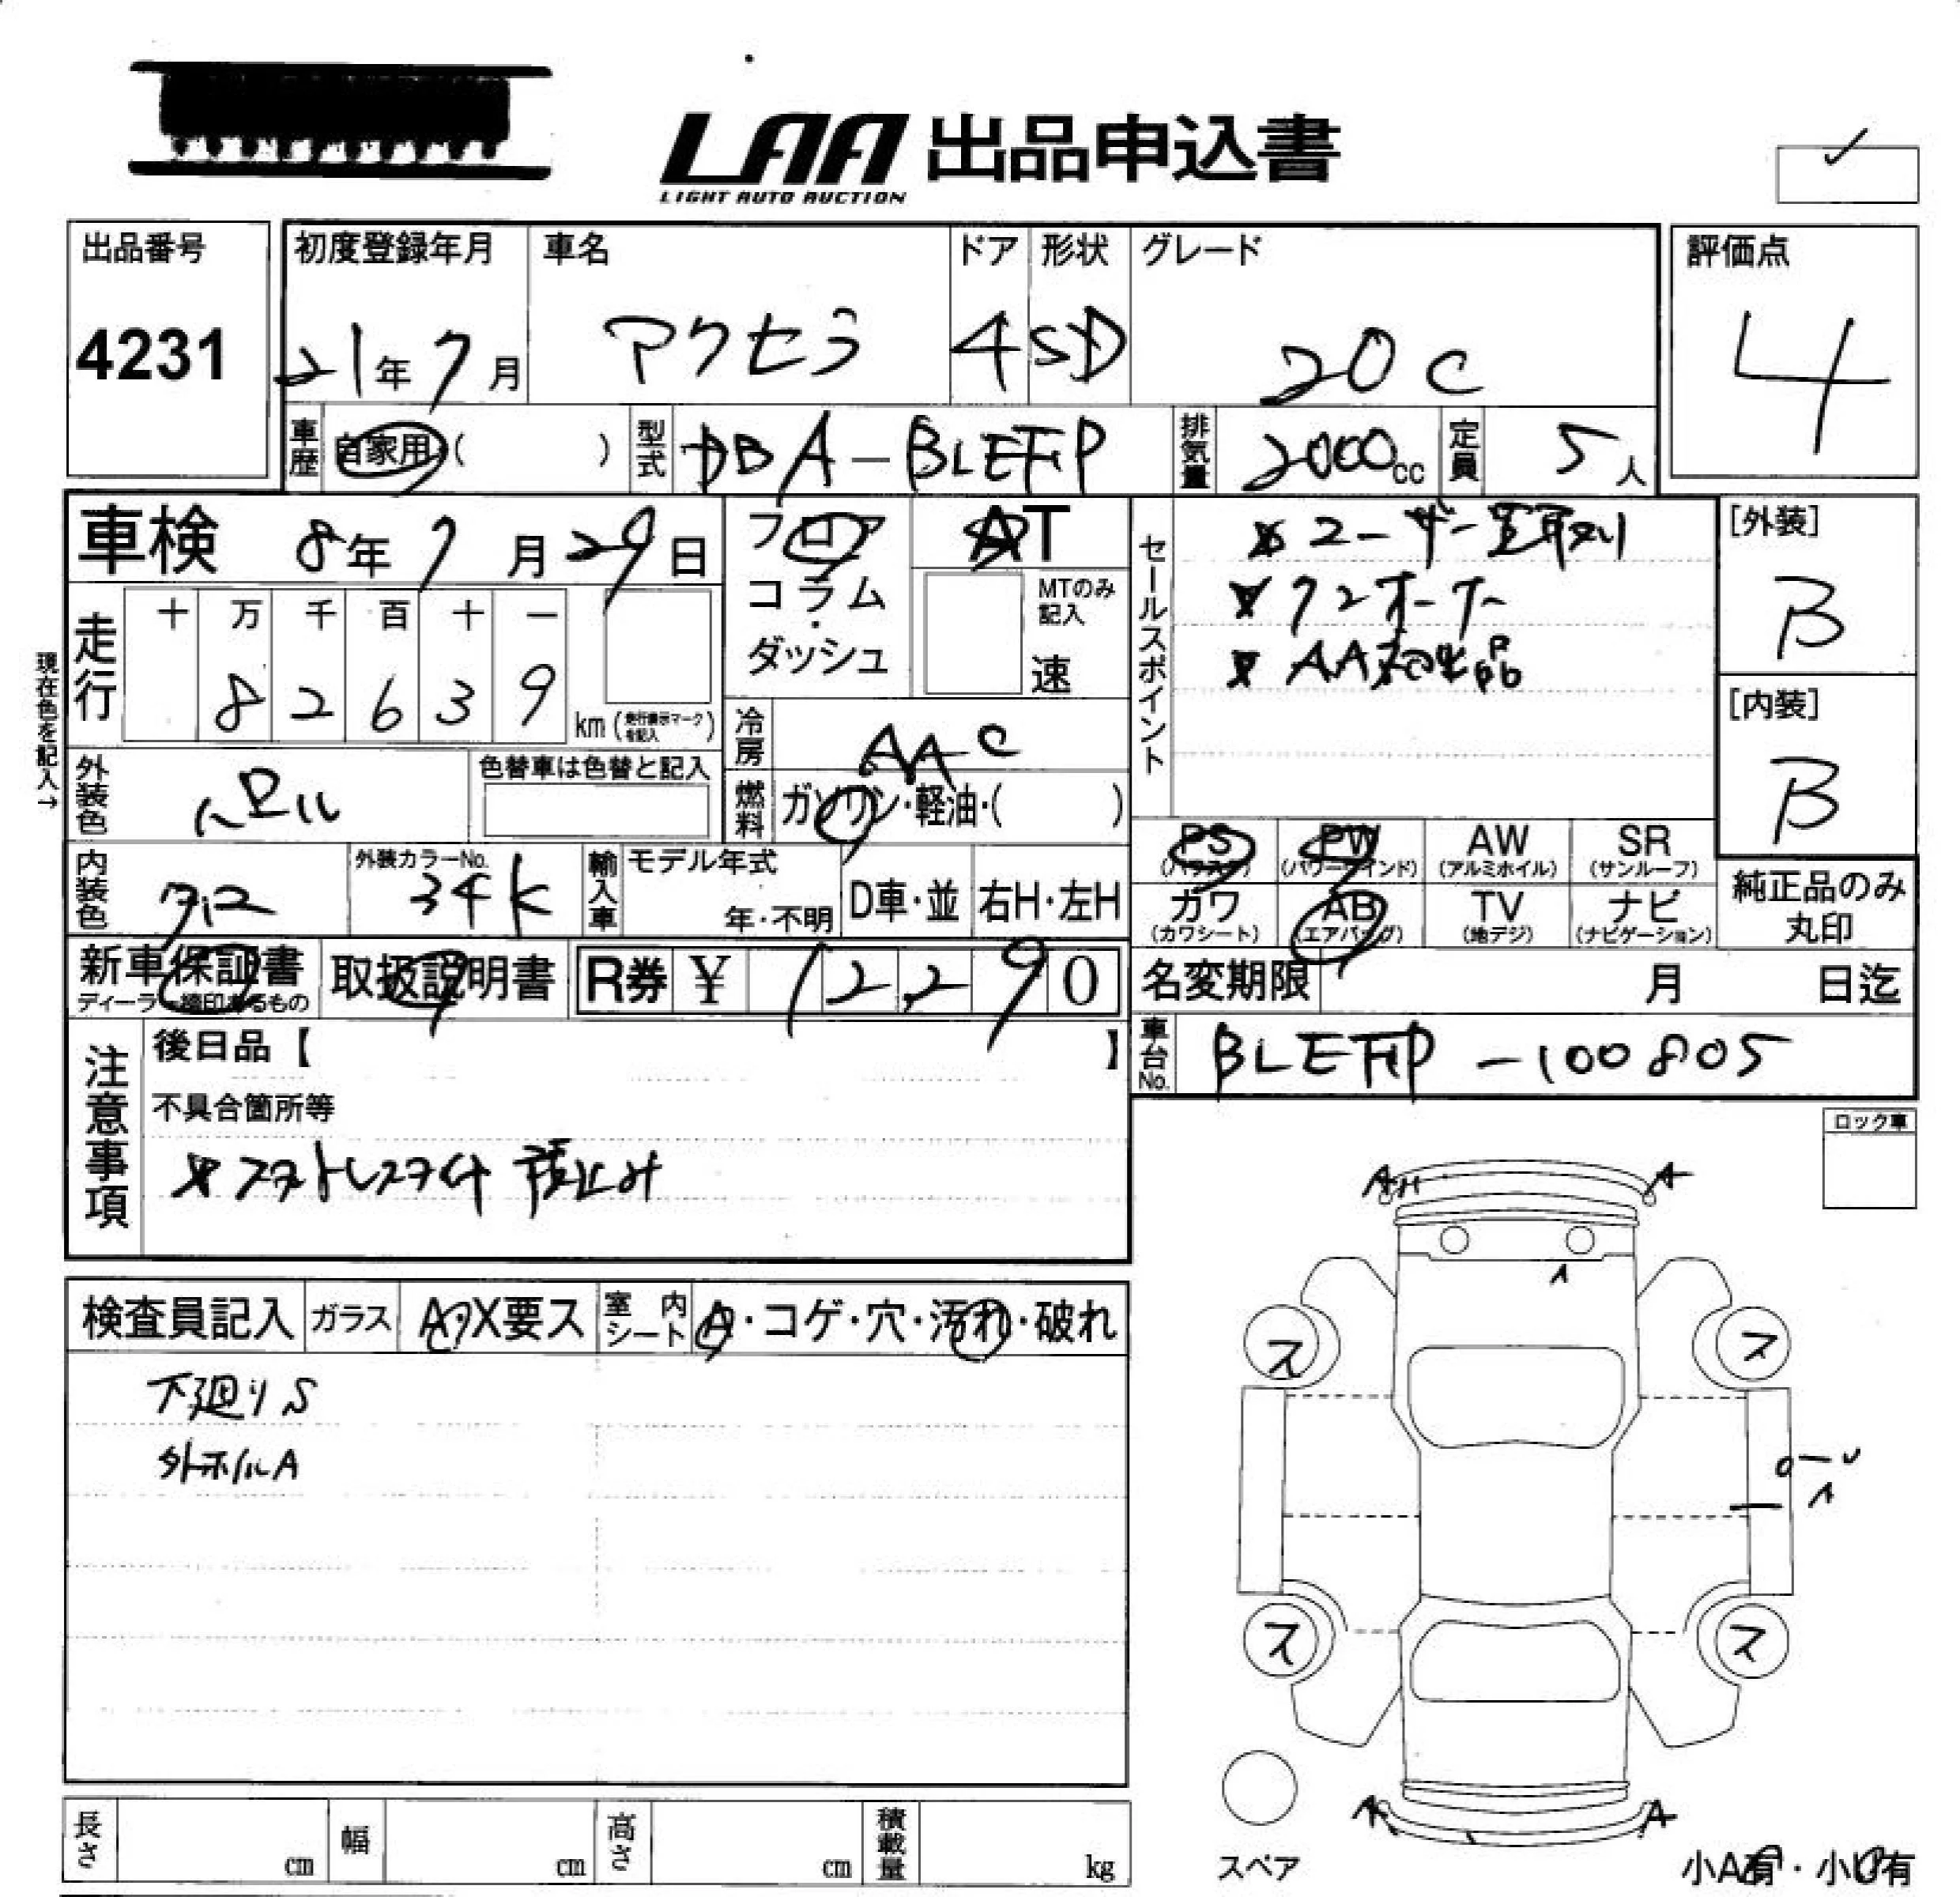 LAA 出品申込書
LIGHT AUTO AUCTION
出品番号
4231
初度登録年月
21年7月
車名
アクセラ
ドア
4
形状
SD
グレード
20C
評価点
4
車歴
自家用（ ）
型式
DBA-BLEFP
排気量
2000cc
定員
5人
車検 8年7月29日
フロア
コラム
ダッシュ
AT
MTのみ
記入
速
セールスポイント
ユーザー買取り
ワンオーナー
AA初出品
[外装]
B
[内装]
B
現在色を記入→
走行
十 万 千 百 十 一
8 2 6 3 9
km（走行表示マークを記入）
冷房
AAC
燃料
ガソリン・軽油・（ ）
外装色
パール
色替車は色替と記入
内装色
クロ
外装カラーNo.
34K
輸入車
モデル年式
年・不明
D車・並
右H・左H
PS
(パワステ)
PW
(パワーウインド)
AW
(アルミホイル)
SR
(サンルーフ)
カワ
(カワシート)
AB
(エアバッグ)
TV
(地デジ)
ナビ
(ナビゲーション)
純正品のみ
丸印
新車保証書
ディーラー捺印あるもの
取扱説明書
R券 ¥ 12,290
名変期限 月 日迄
車台No.
BLEFP-100805
注意事項
後日品【 】
不具合箇所等
スタットレスタイヤ 積込み
ロック車
検査員記入
ガラス
A・X要ス
室内
シート
A・コゲ・穴・汚れ・破れ
下廻りS
外ホイルA
A
A
ス
ス
ス
ス
A
スペア
小A有・小U有
長さ cm
幅 cm
高さ cm
積載量 kg